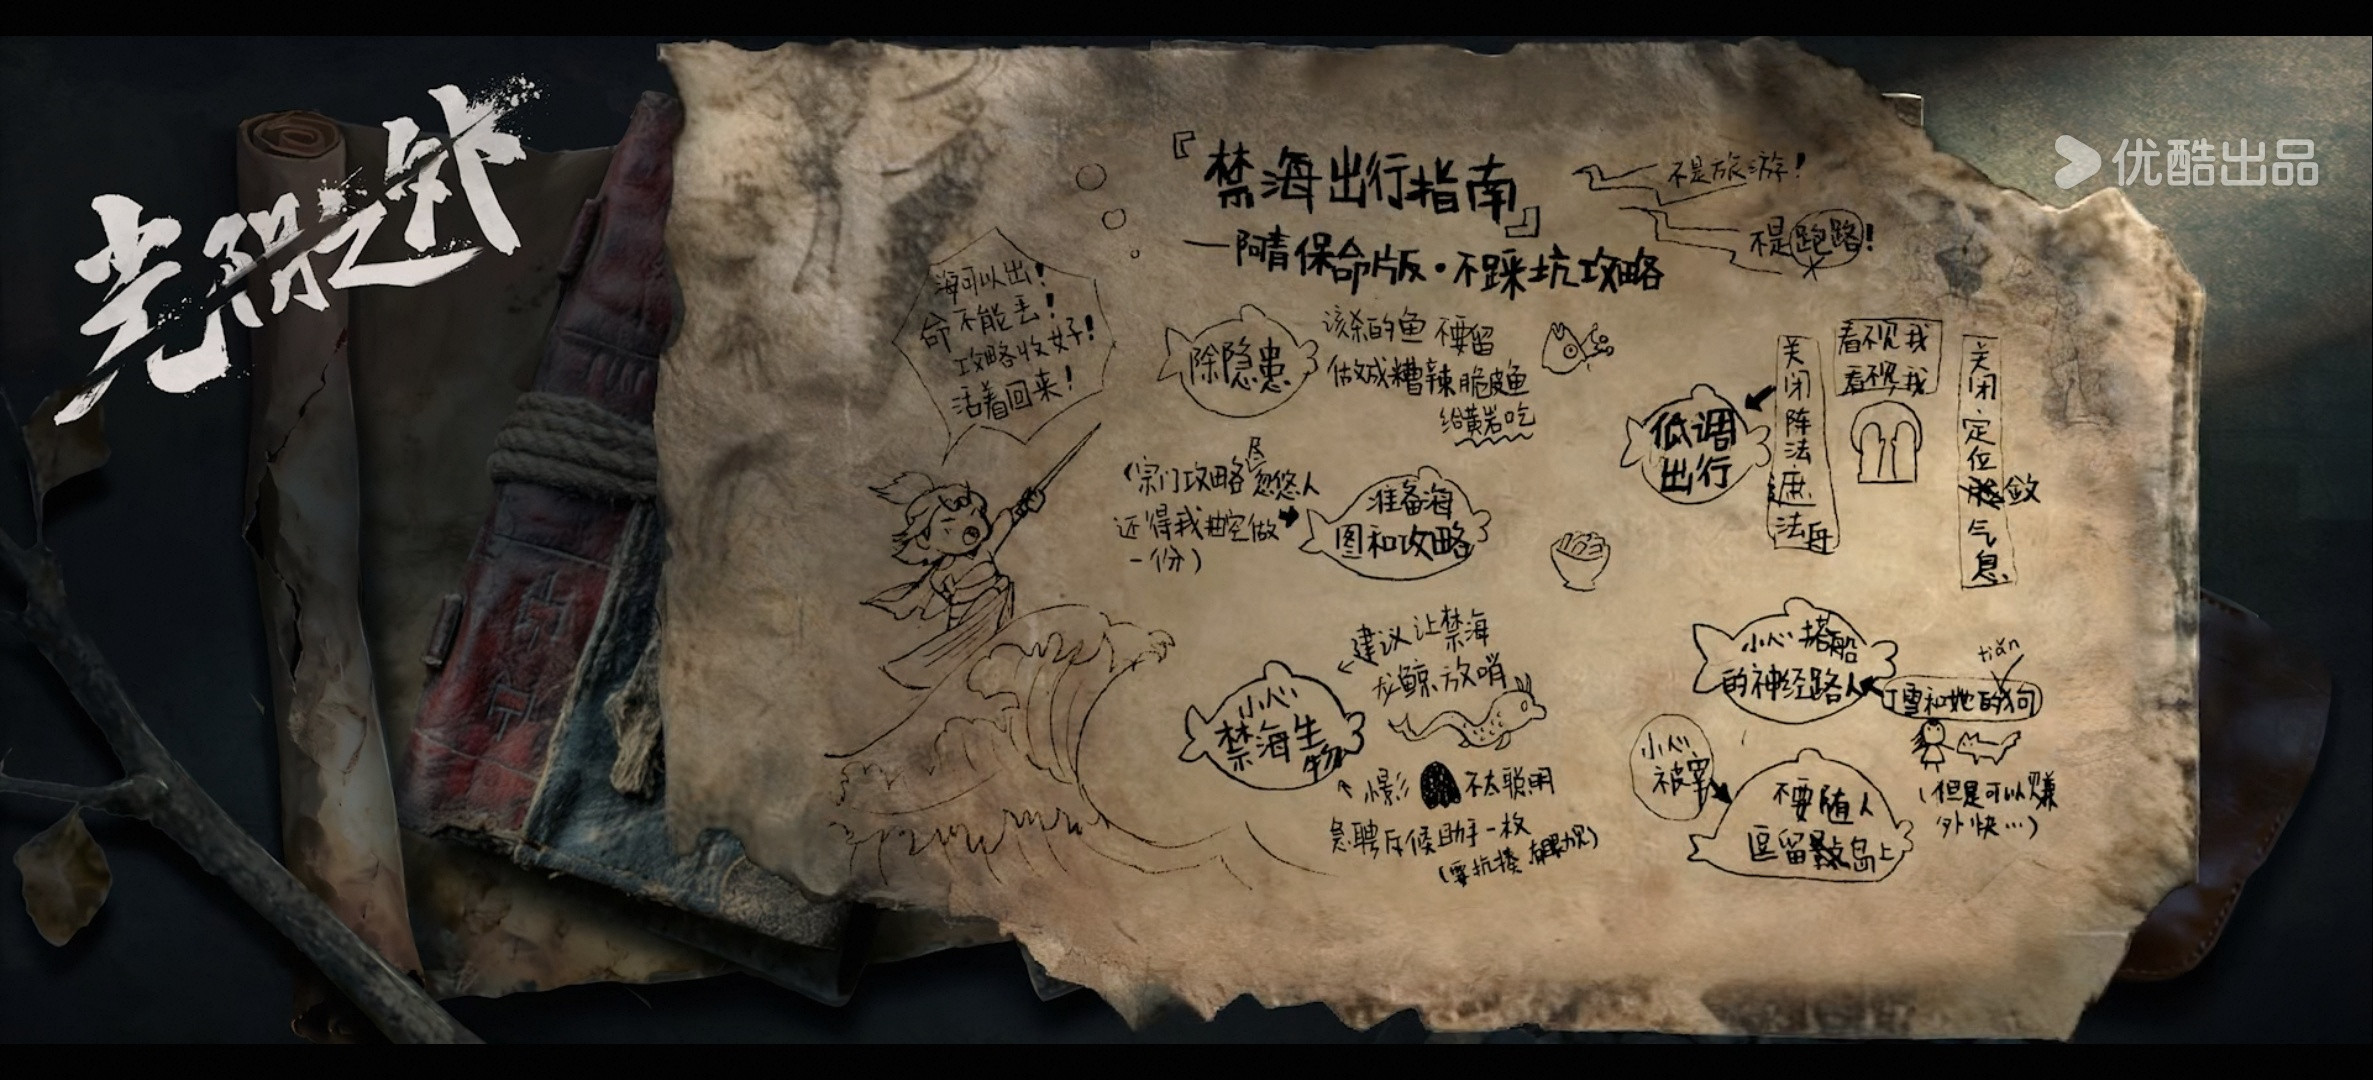 光阴之外
优酷出品
『禁海出行指南』
—阿青保命版·不踩坑攻略
不是旅游！
不是跑路！
海可以出！
命不能丢！
攻略收好！
活着回来！
除隐患
该杀的鱼不要留
做成糟辣脆皮鱼
给黄岩吃
低调
出行
关闭阵法遮法舟
看不见我
看不见我
关闭定位敛气息
（宗门攻略尽忽悠人
还得我抽空做
一份）
准备海
图和攻略
建议让禁海
龙鲸放哨
小心
禁海生物
影 不太聪明
急聘斥候助手一枚
（要抗揍
小心搭船
的神经路人
tiǎn
丁雪和她的狗
（但是可以赚
外快…）
小心
被宰
不要随人
逗留 岛上